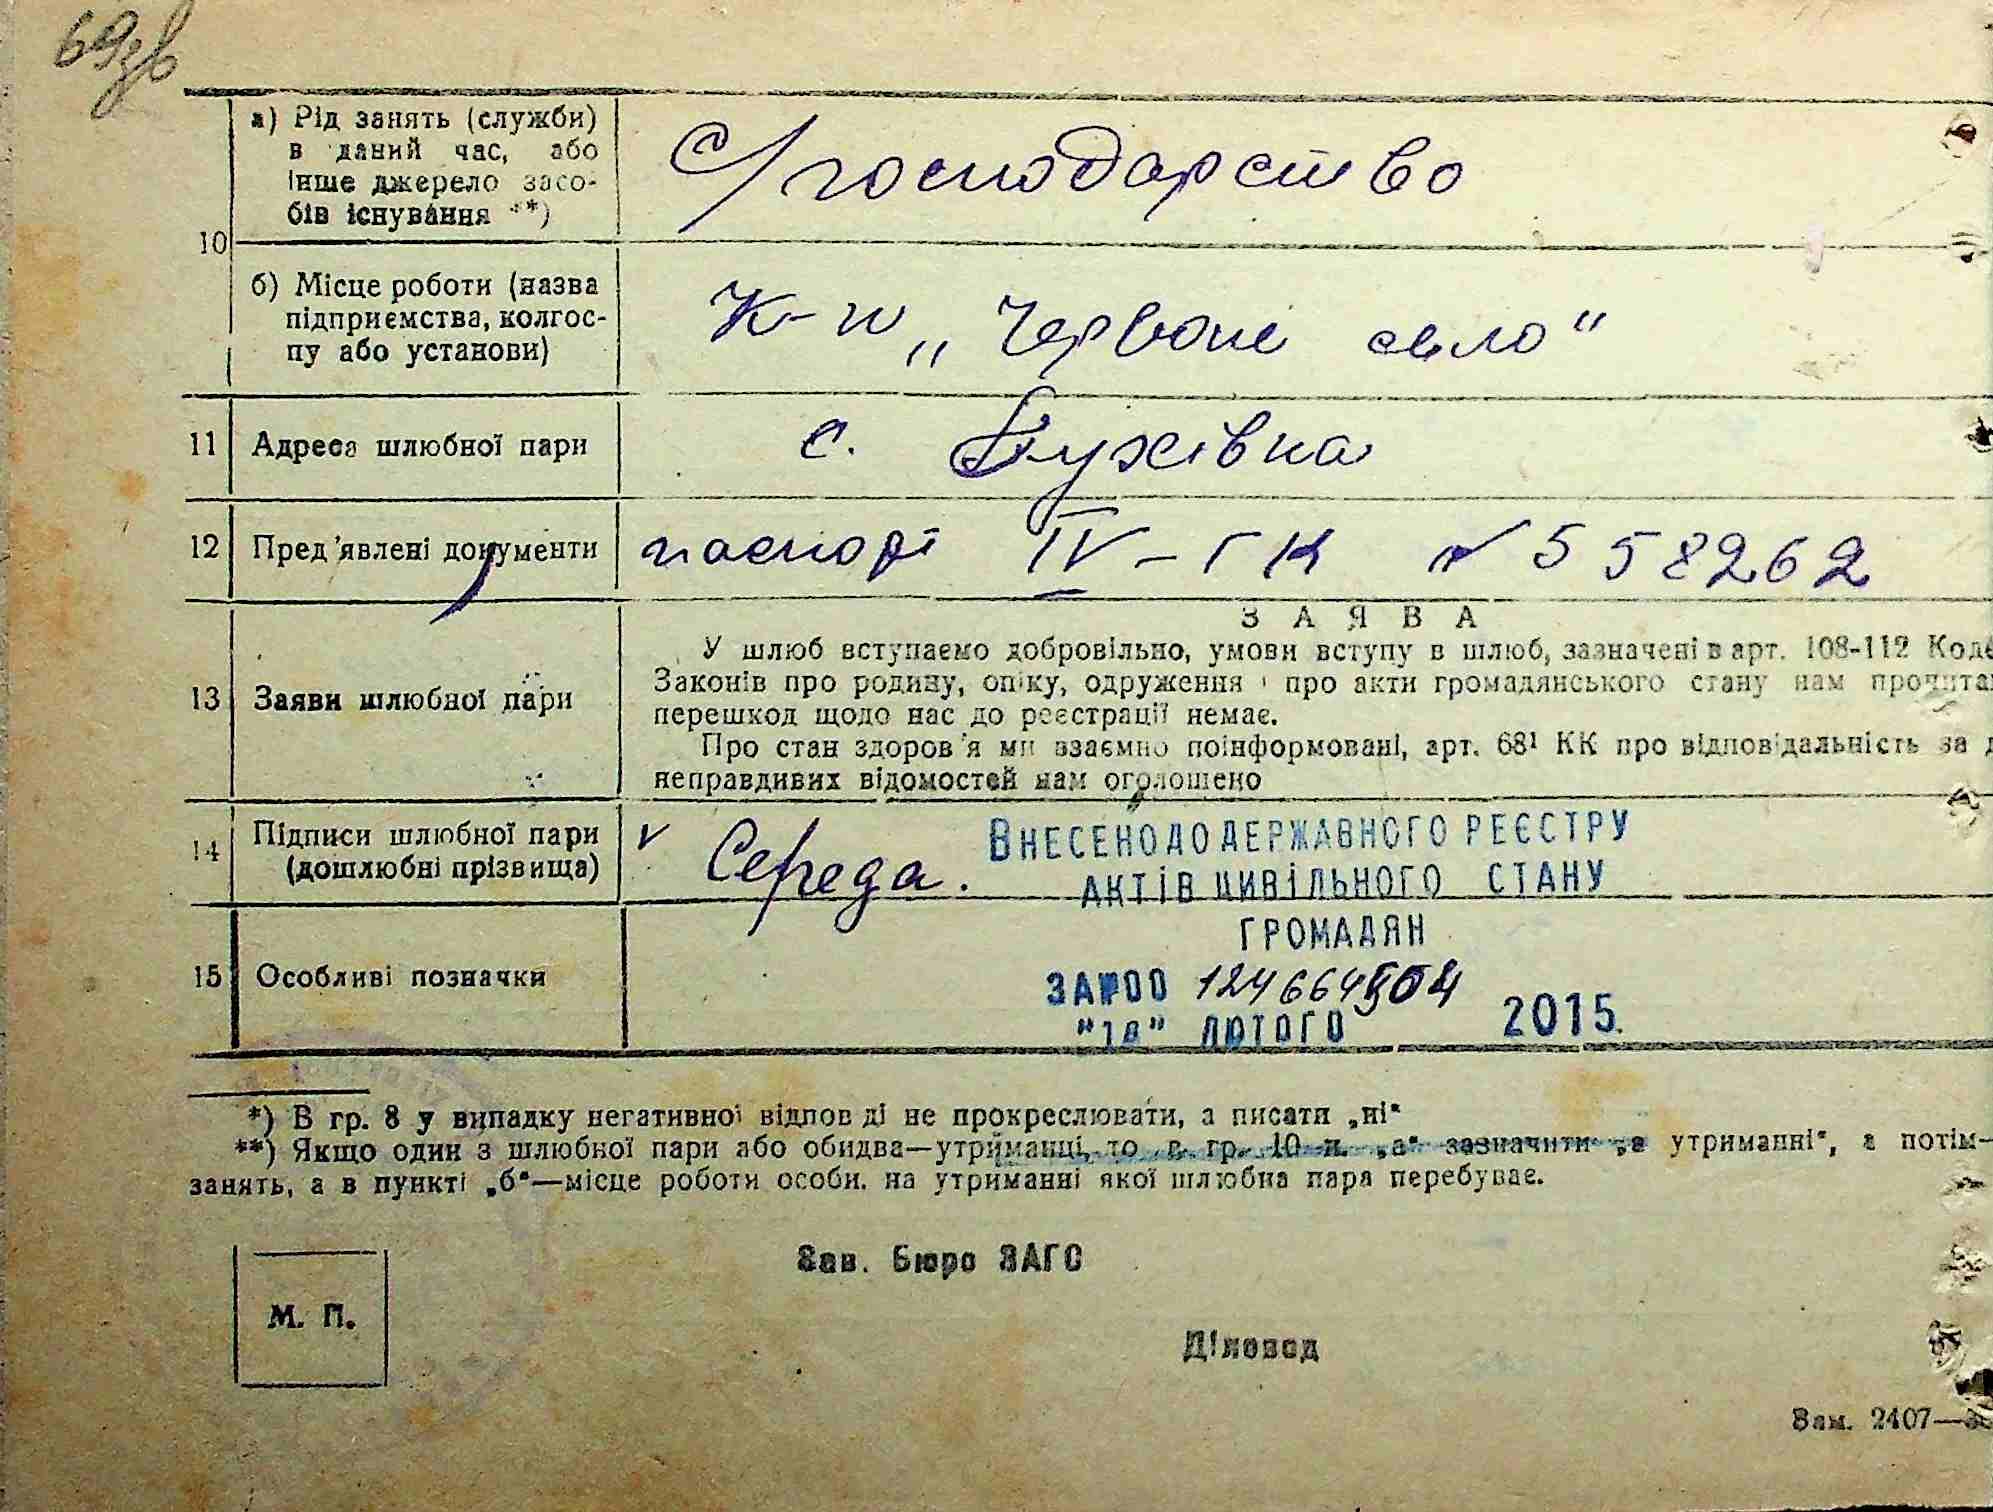 69зв
а) Рід занять (служби)
в даний час, або
інше джерело засо-
бів існування **)
С/господарство
10
б) Місце роботи (назва
підприємства, колгос-
пу або установи)
К-п „Червоне село“
11 Адреса шлюбної пари
с. Пухівка
12 Пред'явлені документи
паспорт IV-ГК № 558262
ЗАЯВА
У шлюб вступаємо добровільно, умови вступу в шлюб, зазначені в арт. 108-112 Коде
Законів про родину, опіку, одруження і про акти громадянського стану нам прочита
перешкод щодо нас до реєстрації немає.
13 Заяви шлюбної пари
Про стан здоров'я ми взаємно поінформовані, арт. 68¹ КК про відповідальність за д
неправдивих відомостей нам оголошено
14 Підписи шлюбної пари
(дошлюбні прізвища)
v Середа.
ВНЕСЕНО ДО ДЕРЖАВНОГО РЕЄСТРУ
АКТІВ ЦИВІЛЬНОГО СТАНУ
ГРОМАДЯН
15 Особливі позначки
ЗА №00 124664504
ЛЮТОГО 2015.
*) В гр. 8 у випадку негативної відповіді не прокреслювати, а писати „ні“
**) Якщо один з шлюбної пари або обидва—утриманці, то в гр. 10 п. „а“ зазначити „на утриманні“, а потім—
занять, а в пункті „б“—місце роботи особи, на утриманні якої шлюбна пара перебуває.
Зав. Бюро ЗАГС
М. П.
Діловод
Зам. 2407—